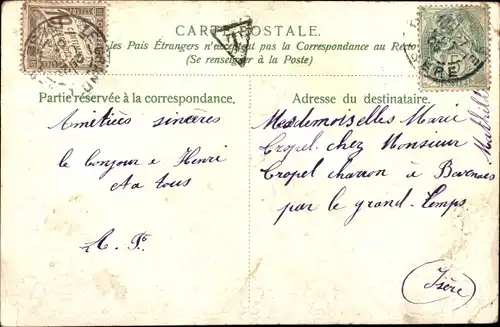 CARTE POSTALE.
les Pais Étrangers n'acceptent pas la Correspondance au Recto
(Se renseigner à la Poste)
Partie réservée à la correspondance.
Amitiées sincères
le bonjour e Henri
a tous
A. F.
Adresse du destinataire.
Mesdemoiselles Marie
Mathilde
Cropel chez Monsieur
Cropel charron à
par le grand-Lemps.
(Isère)